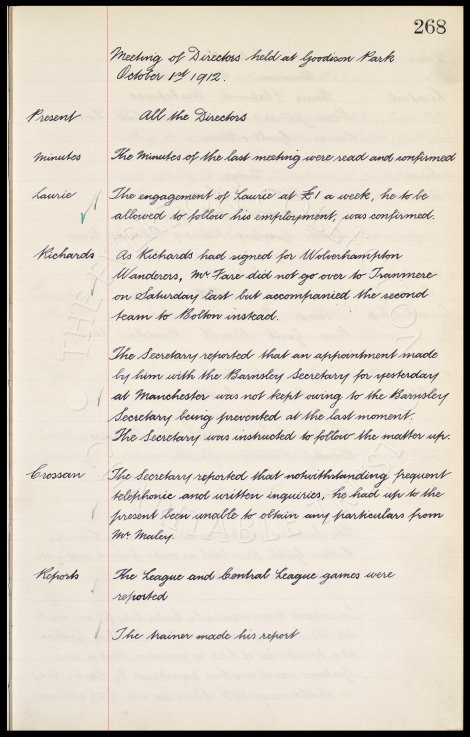 268
Meeting of Directors held at Goodison Park
October 1st 1912.
Present All the Directors
Minutes The Minutes of the last meeting were read and confirmed
Laurie The engagement of Laurie at £1 a week, he to be
allowed to follow his employment, was confirmed.
Richards As Richards had signed for Wolverhampton
Wanderers, Mr Fare did not go over to Tranmere
on Saturday last but accompanied the second
team to Bolton instead.
The Secretary reported that an appointment made
by him with the Barnsley Secretary for yesterday
at Manchester was not kept owing to the Barnsley
Secretary being prevented at the last moment.
The Secretary was instructed to follow the matter up.
Crossan The Secretary reported that notwithstanding frequent
telephonic and written inquiries, he had up to the
present been unable to obtain any particulars from
Mr Maley.
Reports The League and Central League games were
reported
The trainer made his report